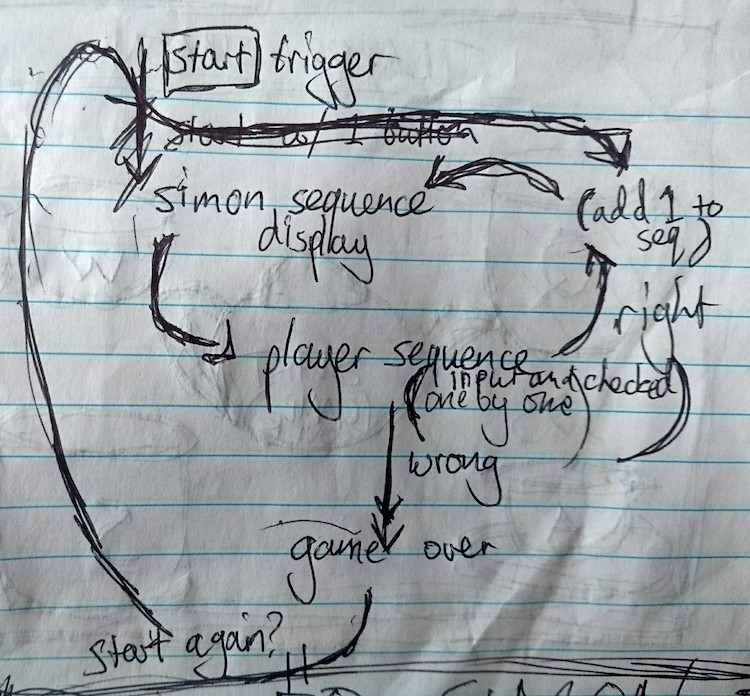 start trigger
start w/ 1 button
simon sequence
display
(add 1 to
seq)
right
player sequence
(input and checked
one by one)
wrong
game over
start again?